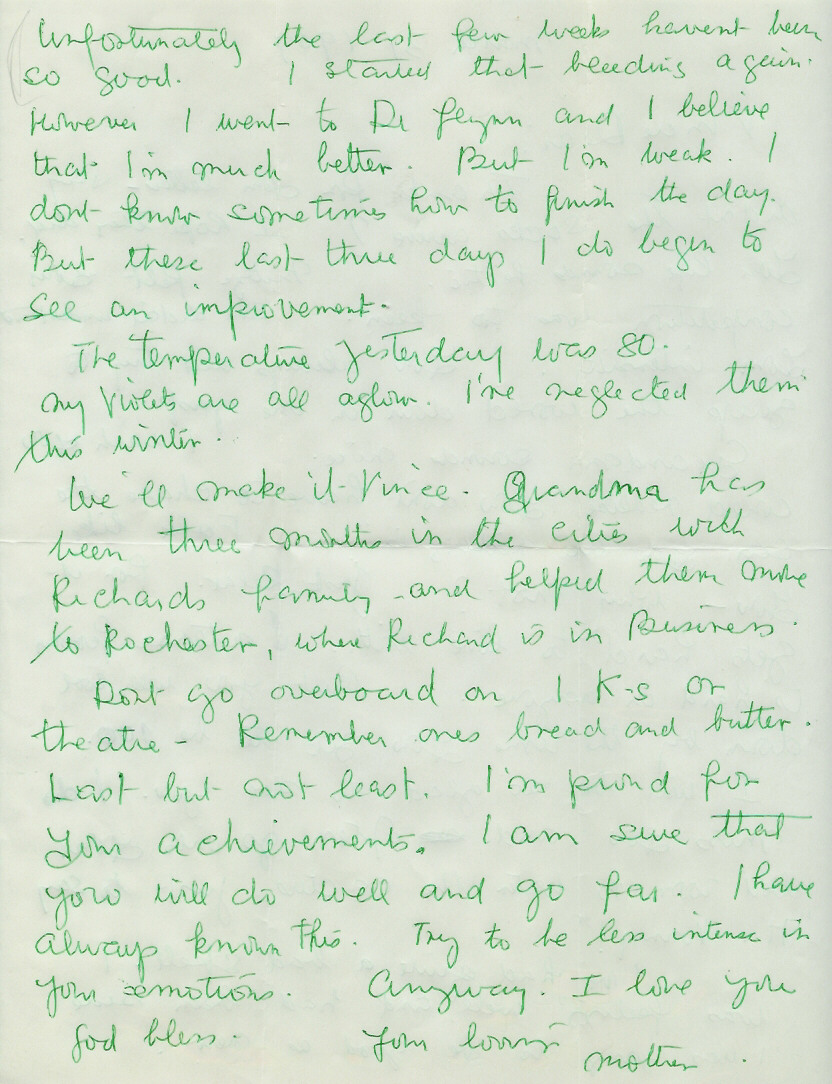 Unfortunately the last few weeks havent been
so good. I started that bleeding again.
However I went to Dr Flynn and I believe
that I'm much better. But I'm weak. I
dont know sometimes how to finish the day.
But these last three days I do begin to
see an improvement.
The temperature yesterday was 80.
my violets are all aglow. I've neglected them
this winter.
We'll make it Vince. Grandma has
been three months in the cities with
Richards family and helped them move
to Rochester, where Richard is in Business.
Dont go overboard on I K-s or
theatre - Remember ones bread and butter.
Last but not least. I'm proud for
your achievements. I am sure that
you will do well and go far. I have
always known this. Try to be less intense in
your emotions. Anyway. I love you
God bless. Your loving
mother.